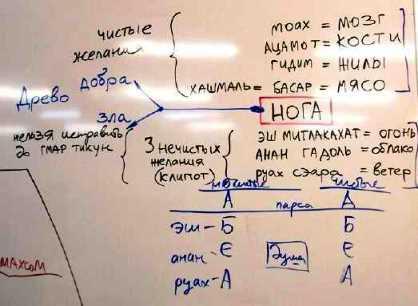 чистые желания
моах = МОЗГ
АЦАМОТ = КОСТИ
ГИДИМ = ЖИЛЫ
ХАШМАЛЬ = БАСАР = МЯСО
Древо
Добра
Зла
НОГА
нельзя исправить
до ГМАР ТИКУН
3 нечистых
желания
(клипот)
ЭШ МИТЛАКАХАТ = огонь
АНАН ГАДОЛЬ = облако
руах сэара = ветер
чистые
А А
парса
ЭШ - Б Б
анан - Є Є
Душа
руах - А А
МАХСОМ